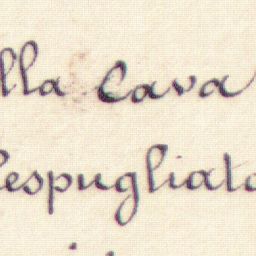 lla Cava
Cespugliato